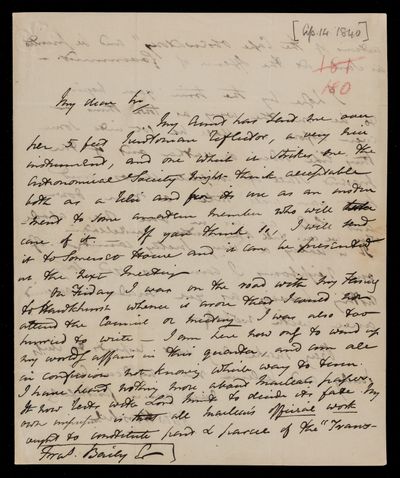 [Ap. 14 1840]
181
180
My dear Sir,
My Aunt has sent me over
her 5 feet Newtonian Reflector, a very nice
instrument, and one which it strikes me the
Astronomical Society might think acceptable
both as a relic and for its use as an instru
ment to some amateur member who will take
care of it. — If you think so, I will send
it to Somerset House and it can be presented
at the next Meeting.
On Friday I was on the road with my family
to Hawkhurst whence it arose that I could not
attend the Council or meeting. I was also too
hurried to write — I am here now only to wind up
my worldly affairs in this quarter and am all
in confusion not knowing which way to turn.
I have heard nothing more about Maclear's papers.
It now rests with Lord Minto to decide its fate. My
own impression is that all Maclear's official work
ought to constitute part & parcel of the "Trans-
Fras. Baily Esq